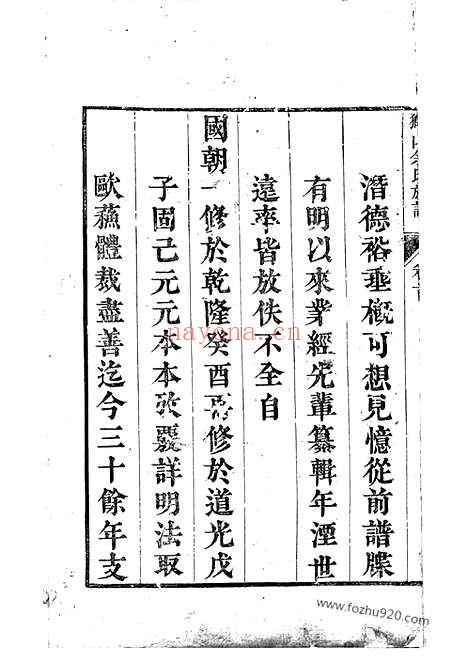 潛德裕垂概可想見憶從前譜牒
有明以來業經先輩纂輯年湮世
遠率皆放佚不全自
國朝一修於乾隆癸酉再修於道光戊
子固已元元本本攷覈詳明法取
歐蘇體裁盡善迄今三十餘年支
nayona.cn
www.fozhu920.com